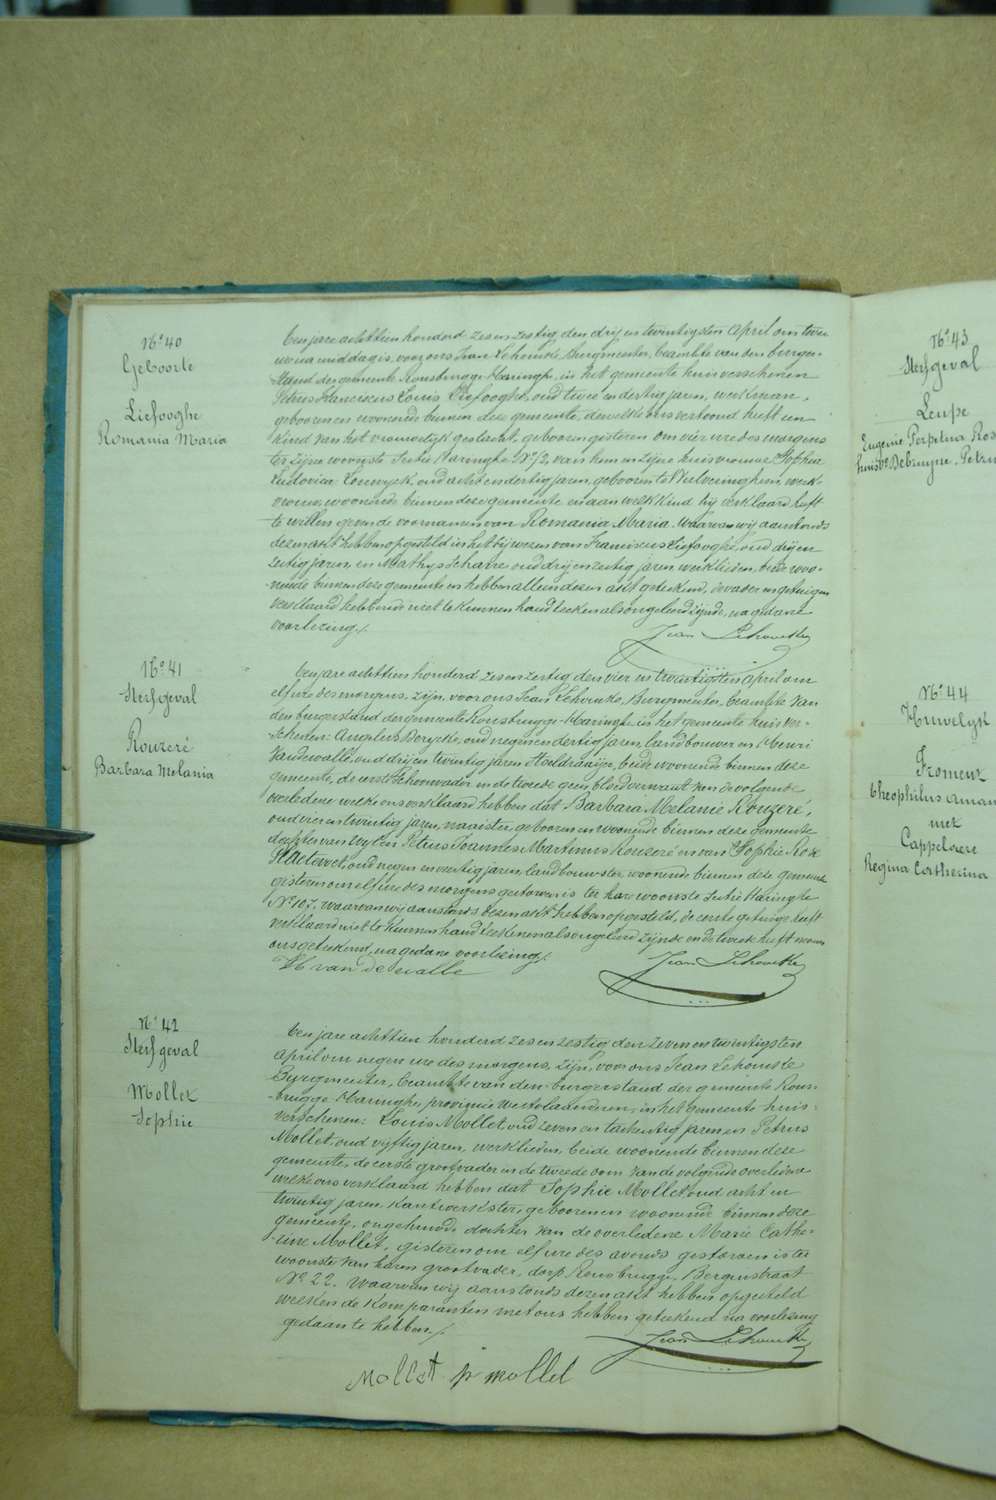 No 40
Geboorte
Liefooghe
Romania Maria
Een jare achttien honderd zes en zestig den drij en twintigsten April om twee
uren na middag is voor ons Jean Lehoucke Burgmeester, beambte van den burger-
stand der gemeente Rousbrugge-Haringhe, in het gemeente huis verschenen
Petrus Franciscus Louis Liefooghe, oud twee en dertig jaren, werkman,
geboren en woonende binnen deze gemeente, dewelke ons vertoond heeft een
kind van het vrouwelijk geslacht, geboren gisteren om vier ure des morgens
ter zijne woonste Sectie Haringhe No /2, van hem en zijne huisvrouwe Sophie
Ludovica oud acht en dertig jaren, geboren te Wulveringhem, werk-
vrouw, woonende binnen deze gemeente en aan welk kind hij verklaard heeft
te willen geven de voornamen van Romania Maria. Waarvan wij aanstonds
dezen akt hebben opgesteld in het bijwezen van Franciscus Liefooghe, oud drij en
zestig jaren, en Mathys Scharre oud drij en zestig jaren werklieden, beide woo-
nende binnen deze gemeente en hebben alleen dezen akt geteekend, de vader en getuigen
verklaard hebbende niet te kunnen handteekenen als ongeleerd zijnde, na gedane
voorlezing./.
Jean Lehoucke
No 41
Sterfgeval
Rouzeré
Barbara Melania
Een jare achttien honderd zes en zestig den vier en twintigsten April om
elf ure des morgens, zijn voor ons Jean Lehoucke, Burgmeester, beambte van
den burgerstand der gemeente Rousbrugge-Haringhe in het gemeente huis ver-
schenen: Angelus Berycke, oud negen en dertig jaren, landbouwer en Henri
Vandewalle, oud drij en twintig jaren Stoeldraaijer, beide woonende binnen deze
gemeente, de eerste schoonvader en de tweede geen bloedverwant van de volgende
overledene welke ons verklaard hebben dat Barbara Melanie Rouzeré,
oud vier en twintig jaren, naaister, geboren en woonende binnen deze gemeente
dochter van wylen Petrus Joannes Martinus Rouzeré en van Sophie Rose
Staelewet, oud negen en veertig jaren landbouwster, woonende binnen deze gemeente
gisteren om elf ure des morgens gestorven is ter hare woonste Sectie Haringhe
No 107. waarvan wij aanstonds dezen akt hebben opgesteld, de eerste getuige heeft
verklaard niet te kunnen handteekenen als ongeleerd zijnde en de tweede heeft nevens
ons geteekend, na gedane voorlezing./.
H van de walle
Jean Lehoucke
No 42
Sterfgeval
Mollet
Sophie
Een jare achttien honderd zes en zestig den zeven en twintigsten
April om negen ure des morgens, zijn voor ons Jean Lehoucke
Burgmeester, beambte van den burgerstand der gemeente Rous-
brugge-Haringhe, provincie Westvlaanderen, in het gemeente huis
verschenen: Louis Mollet oud zeven en tachentig jaren en Petrus
Mollet, oud vijftig jaren, werklieden, beide woonende binnen deze
gemeente, de eerste grootvader en de tweede oom van de volgende overledene
welke ons verklaard hebben dat Sophie Mollet oud acht en
twintig jaren, kantwerkster, geboren en woonende binnen deze
gemeente, ongehuwde dochter van de overledene Marie Cathe-
rine Mollet, gisteren om elf ure des avonds gestorven is ter
woonste van haren grootvader, dorp Rousbrugge, Bergenstraat
No 22. Waarvan wij aanstonds dezen akt hebben opgesteld
welken de komparanten met ons hebben geteekend na voorlezing
gedaan te hebben./.
Jean Lehoucke
Mollet p mollet
No 43
Sterfgeval
Leupe
Eugenie Perpetua Ros
huisve Debruyne Petru
No 44
Huwelyk
Fromens
Theophilus Aman
met
Cappelaere
Regina Catherina